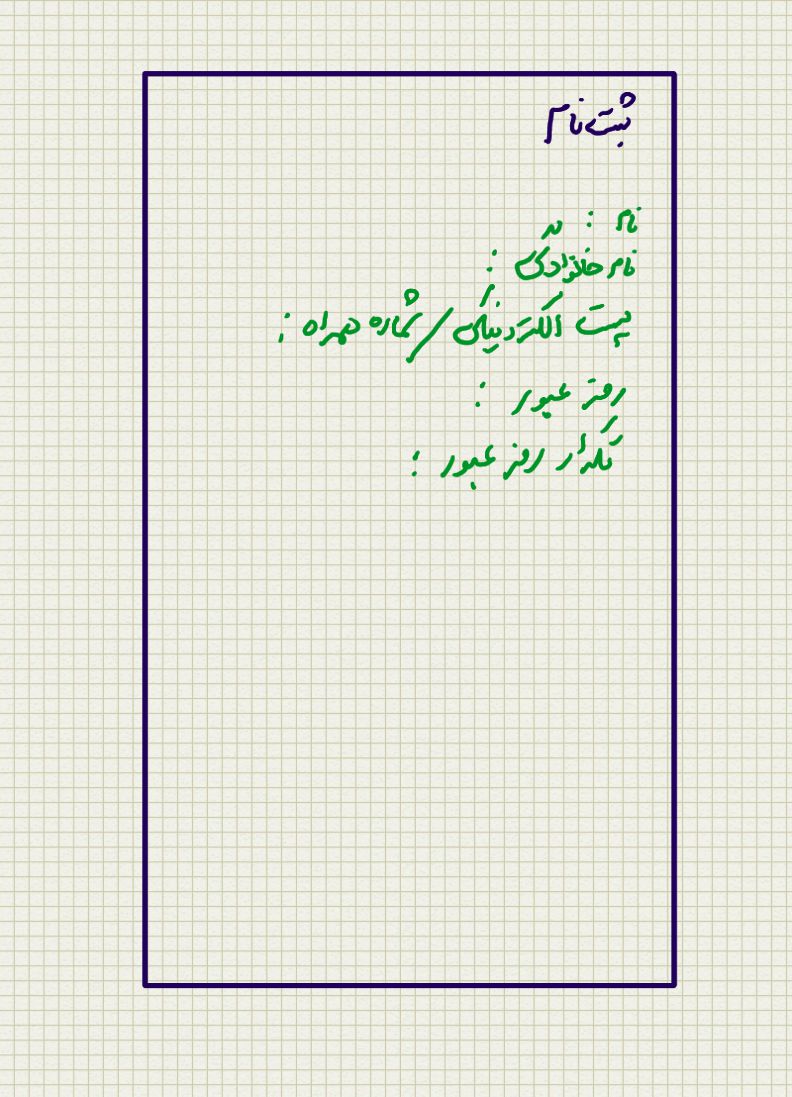 ثبت نام
نام :
نام خانوادگی :
پست الکترونیکی / شماره همراه :
رمز عبور :
تکرار رمز عبور :